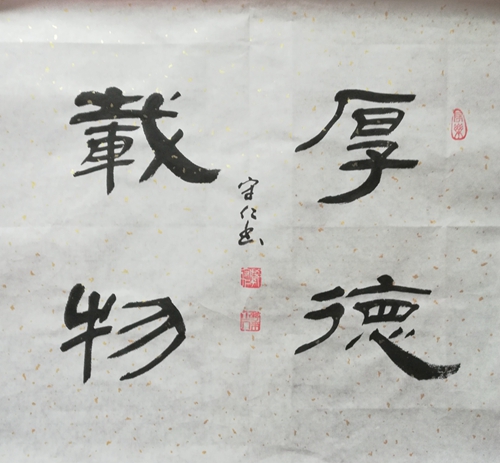 厚德
載物
守仁书